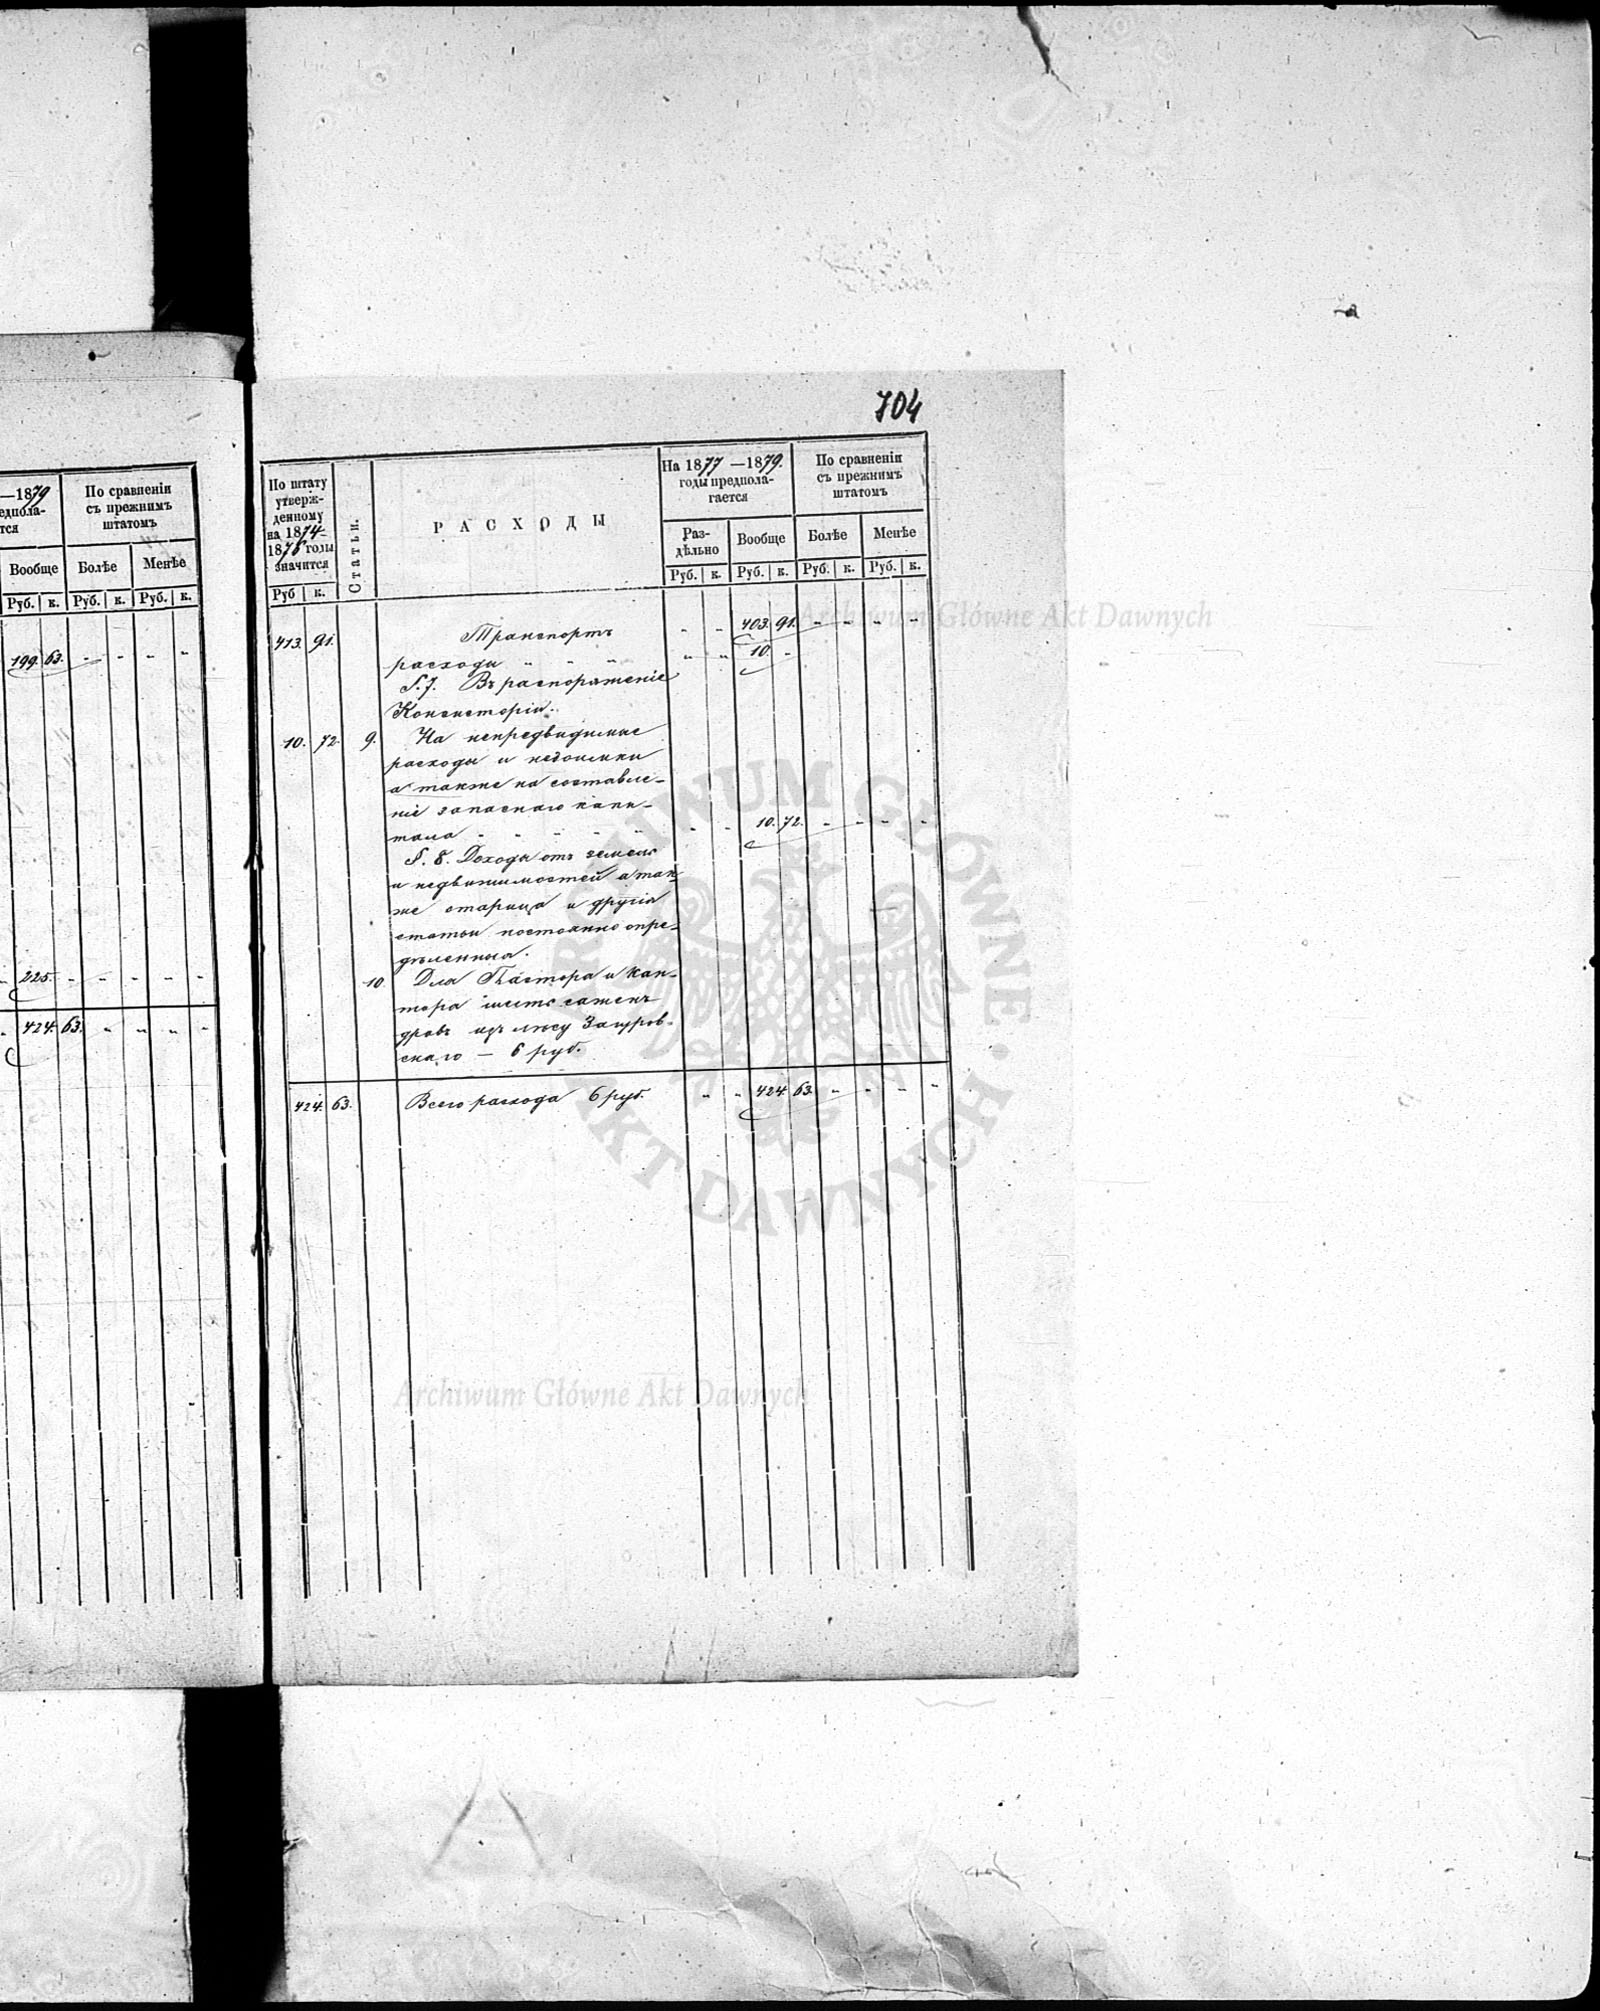 704
—1879
По сравненіи
съ прежнимъ
штатомъ
Вообще Болѣе Менѣе
Руб. к. Руб. к. Руб. к.
199. 63. „ „ „ „
225. „ „ „ „ „
424. 63. „ „ „ „
По штату
утверж-
денному
на 1874-
1876 годы
значится
Руб к.
Статьи.
РАСХОДЫ
На 1877 —1879.
годы предпола-
гается
Раз-
дѣльно
Вообще
Руб. к. Руб. к.
По сравненіи
съ прежнимъ
штатомъ
Болѣе Менѣе
Руб. к. Руб. к.
413. 91. Транспортъ „ „ 403. 91. „ „ „ „
расходы „ „ „ „ „ 10. „
§. 7. Въ распоряженіе
Консисторіи.
10. 72. 9. На непредвидимые
расходы и недоимки
а также на составле-
ніе запаснаго капи-
тала „ „ „ „ „ „ „ 10. 72. „ „ „ „
§. 8. Доходы отъ земель
и недвижимостей а так-
же и другія
статьи постоянно опре-
дѣленныя.
10 Для Пастора и кан-
тора шесть сажень
дровъ изъ лѣсу Загуров-
скаго — 6 руб.
424. 63. Всего расхода 6 руб. „ „ 424. 63. „ „ „ „
Archiwum Główne Akt Dawnych
ARCHIWUM GŁÓWNE AKT DAWNYCH
Archiwum Główne Akt Dawnych